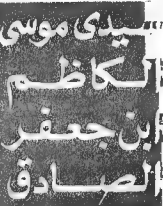 سيدى موسى
الكاظم
ابن جعفر
الصادق